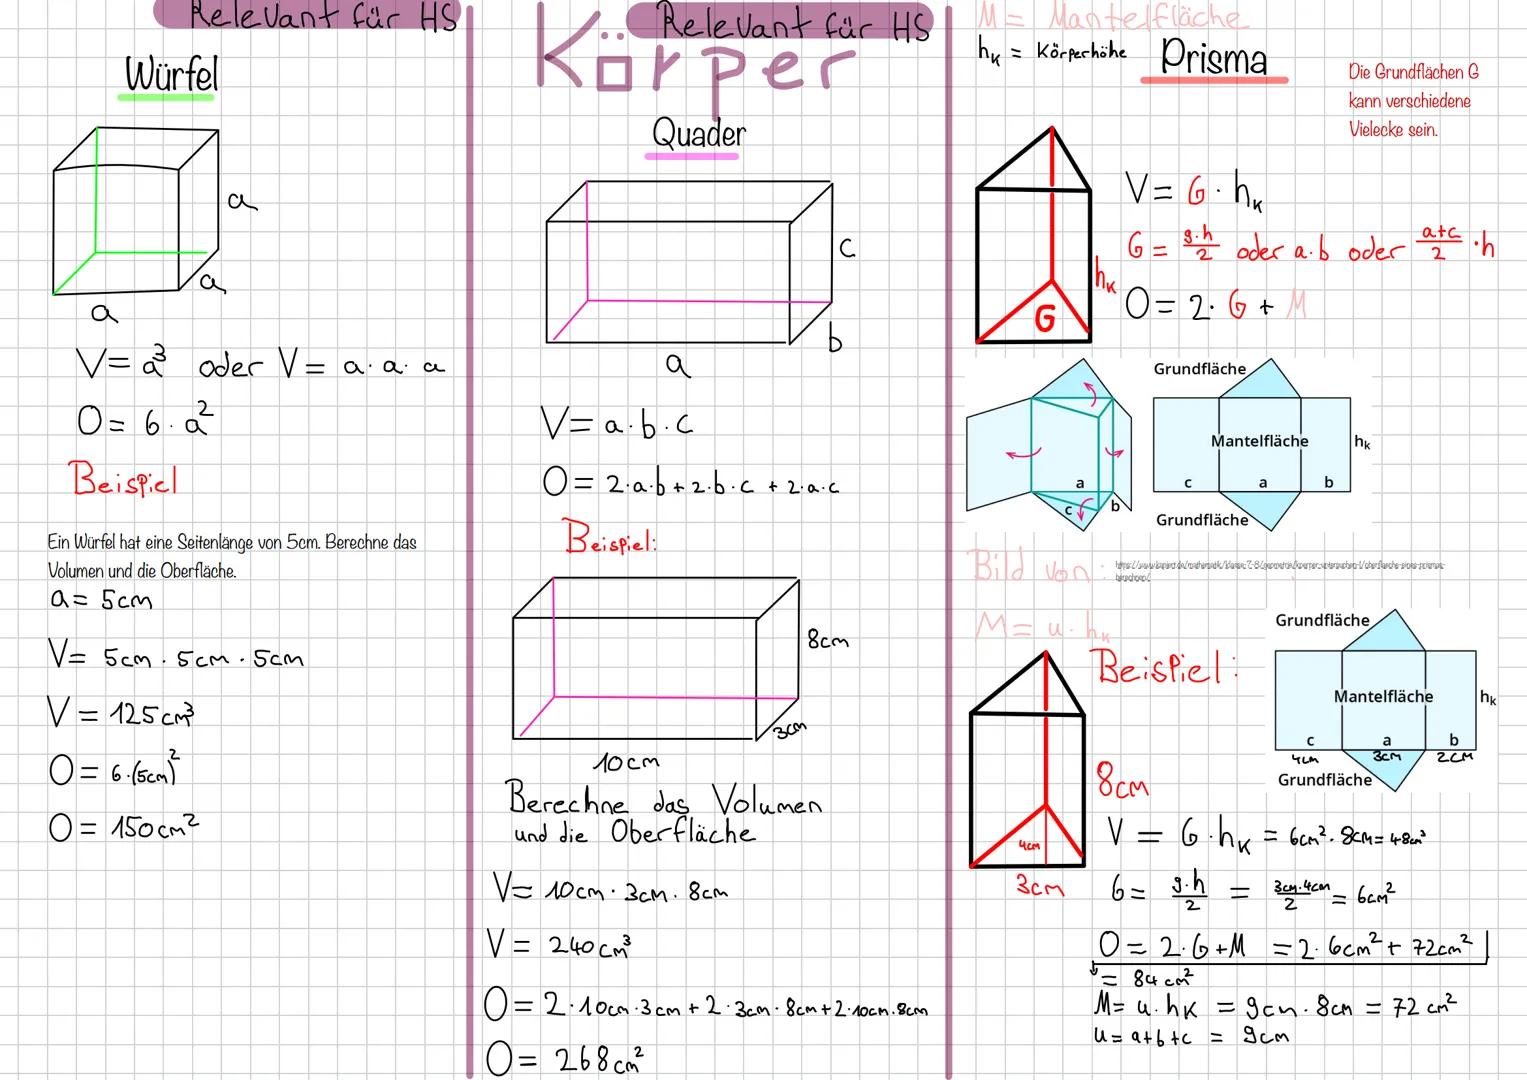 Relevant für HS
Würfel
a
a
a
V = a³ oder V = a · a · a
O = 6 · a²
Beispiel
Ein Würfel hat eine Seitenlänge von 5cm. Berechne das
Volumen und die Oberfläche.
a = 5cm
V = 5cm · 5cm · 5cm
V = 125cm³
O = 6·(5cm)²
O = 150cm²
Körper
Relevant für HS
Quader
c
b
a
V = a · b · c
O = 2·a·b + 2·b·c + 2·a·c
Beispiel:
8cm
3cm
10cm
Berechne das Volumen
und die Oberfläche
V = 10cm · 3cm · 8cm
V = 240cm³
O = 2·10cm·3cm + 2·3cm·8cm + 2·10cm·8cm
O = 268cm²
M = Mantelfläche
hK = Körperhöhe
Prisma
Die Grundflächen G
kann verschiedene
Vielecke sein.
V = G · hK
G = g·h/2 oder a·b oder a+c/2 · h
hK
O = 2 · G + M
G
Grundfläche
Mantelfläche
hk
a
c
b
c
a
b
Grundfläche
Bild von:
M = u · hK
Beispiel:
Grundfläche
Mantelfläche
hk
c
a
b
4cm
3cm
2cm
Grundfläche
8cm
4cm
3cm
V = G · hK = 6cm² · 8cm = 48cm³
G = g·h/2 = 3cm·4cm/2 = 6cm²
O = 2·G + M = 2 · 6cm² + 72cm²
= 84cm²
M = u · hK = 9cm · 8cm = 72cm²
u = a+b+c = 9cm